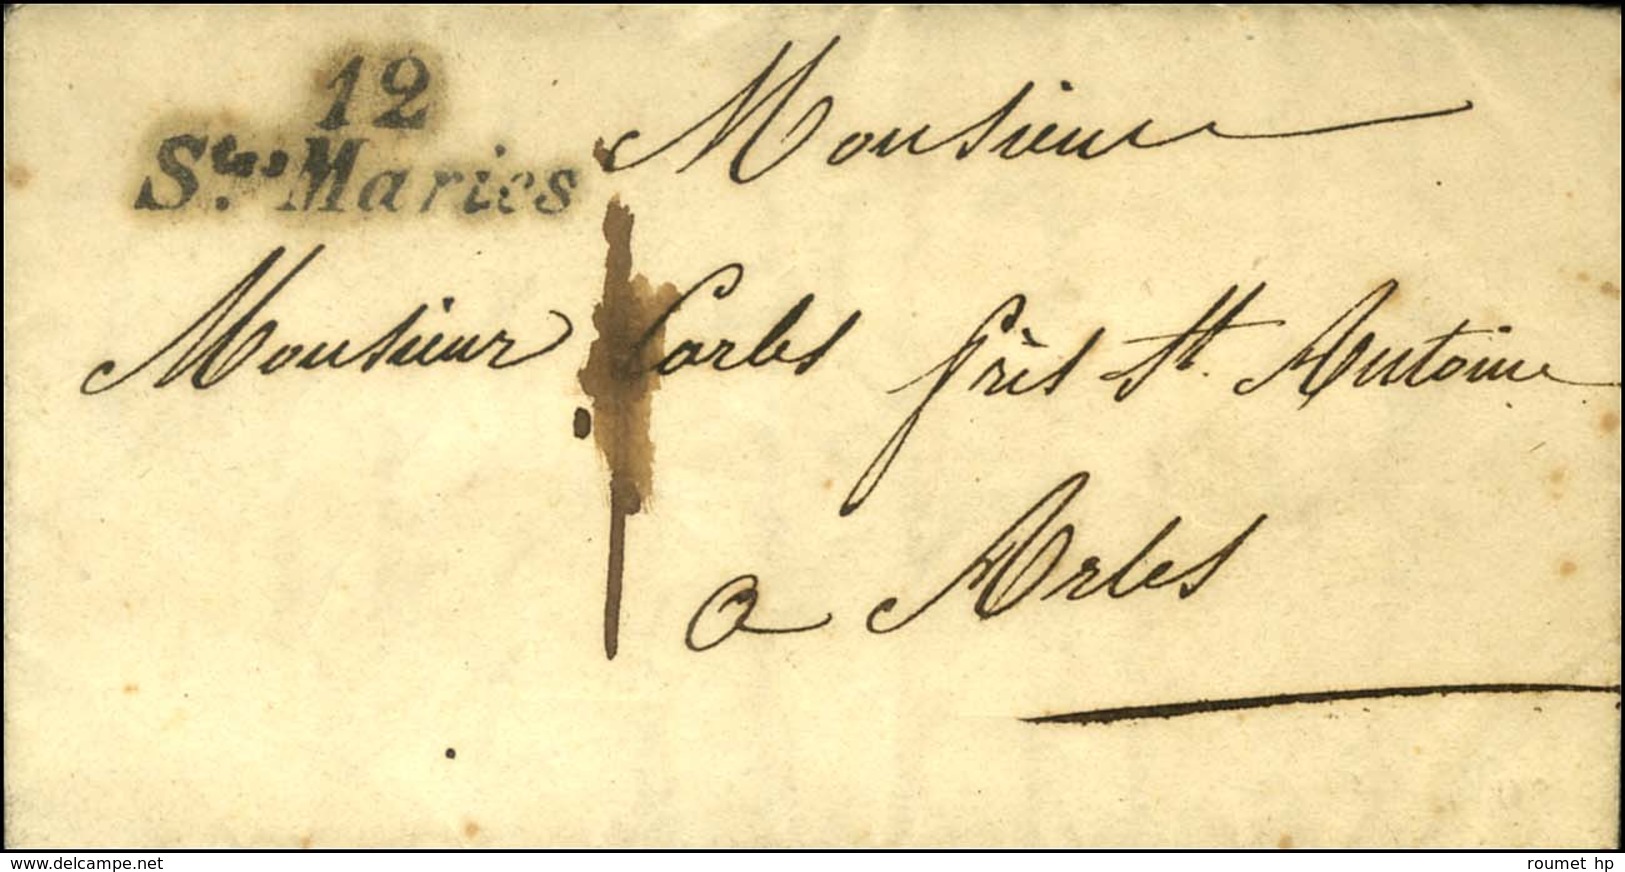 12
Stes Maries
Monsieur
Monsieur Carles près St. Antoine
a Arles
www.delcampe.net
roumet hp